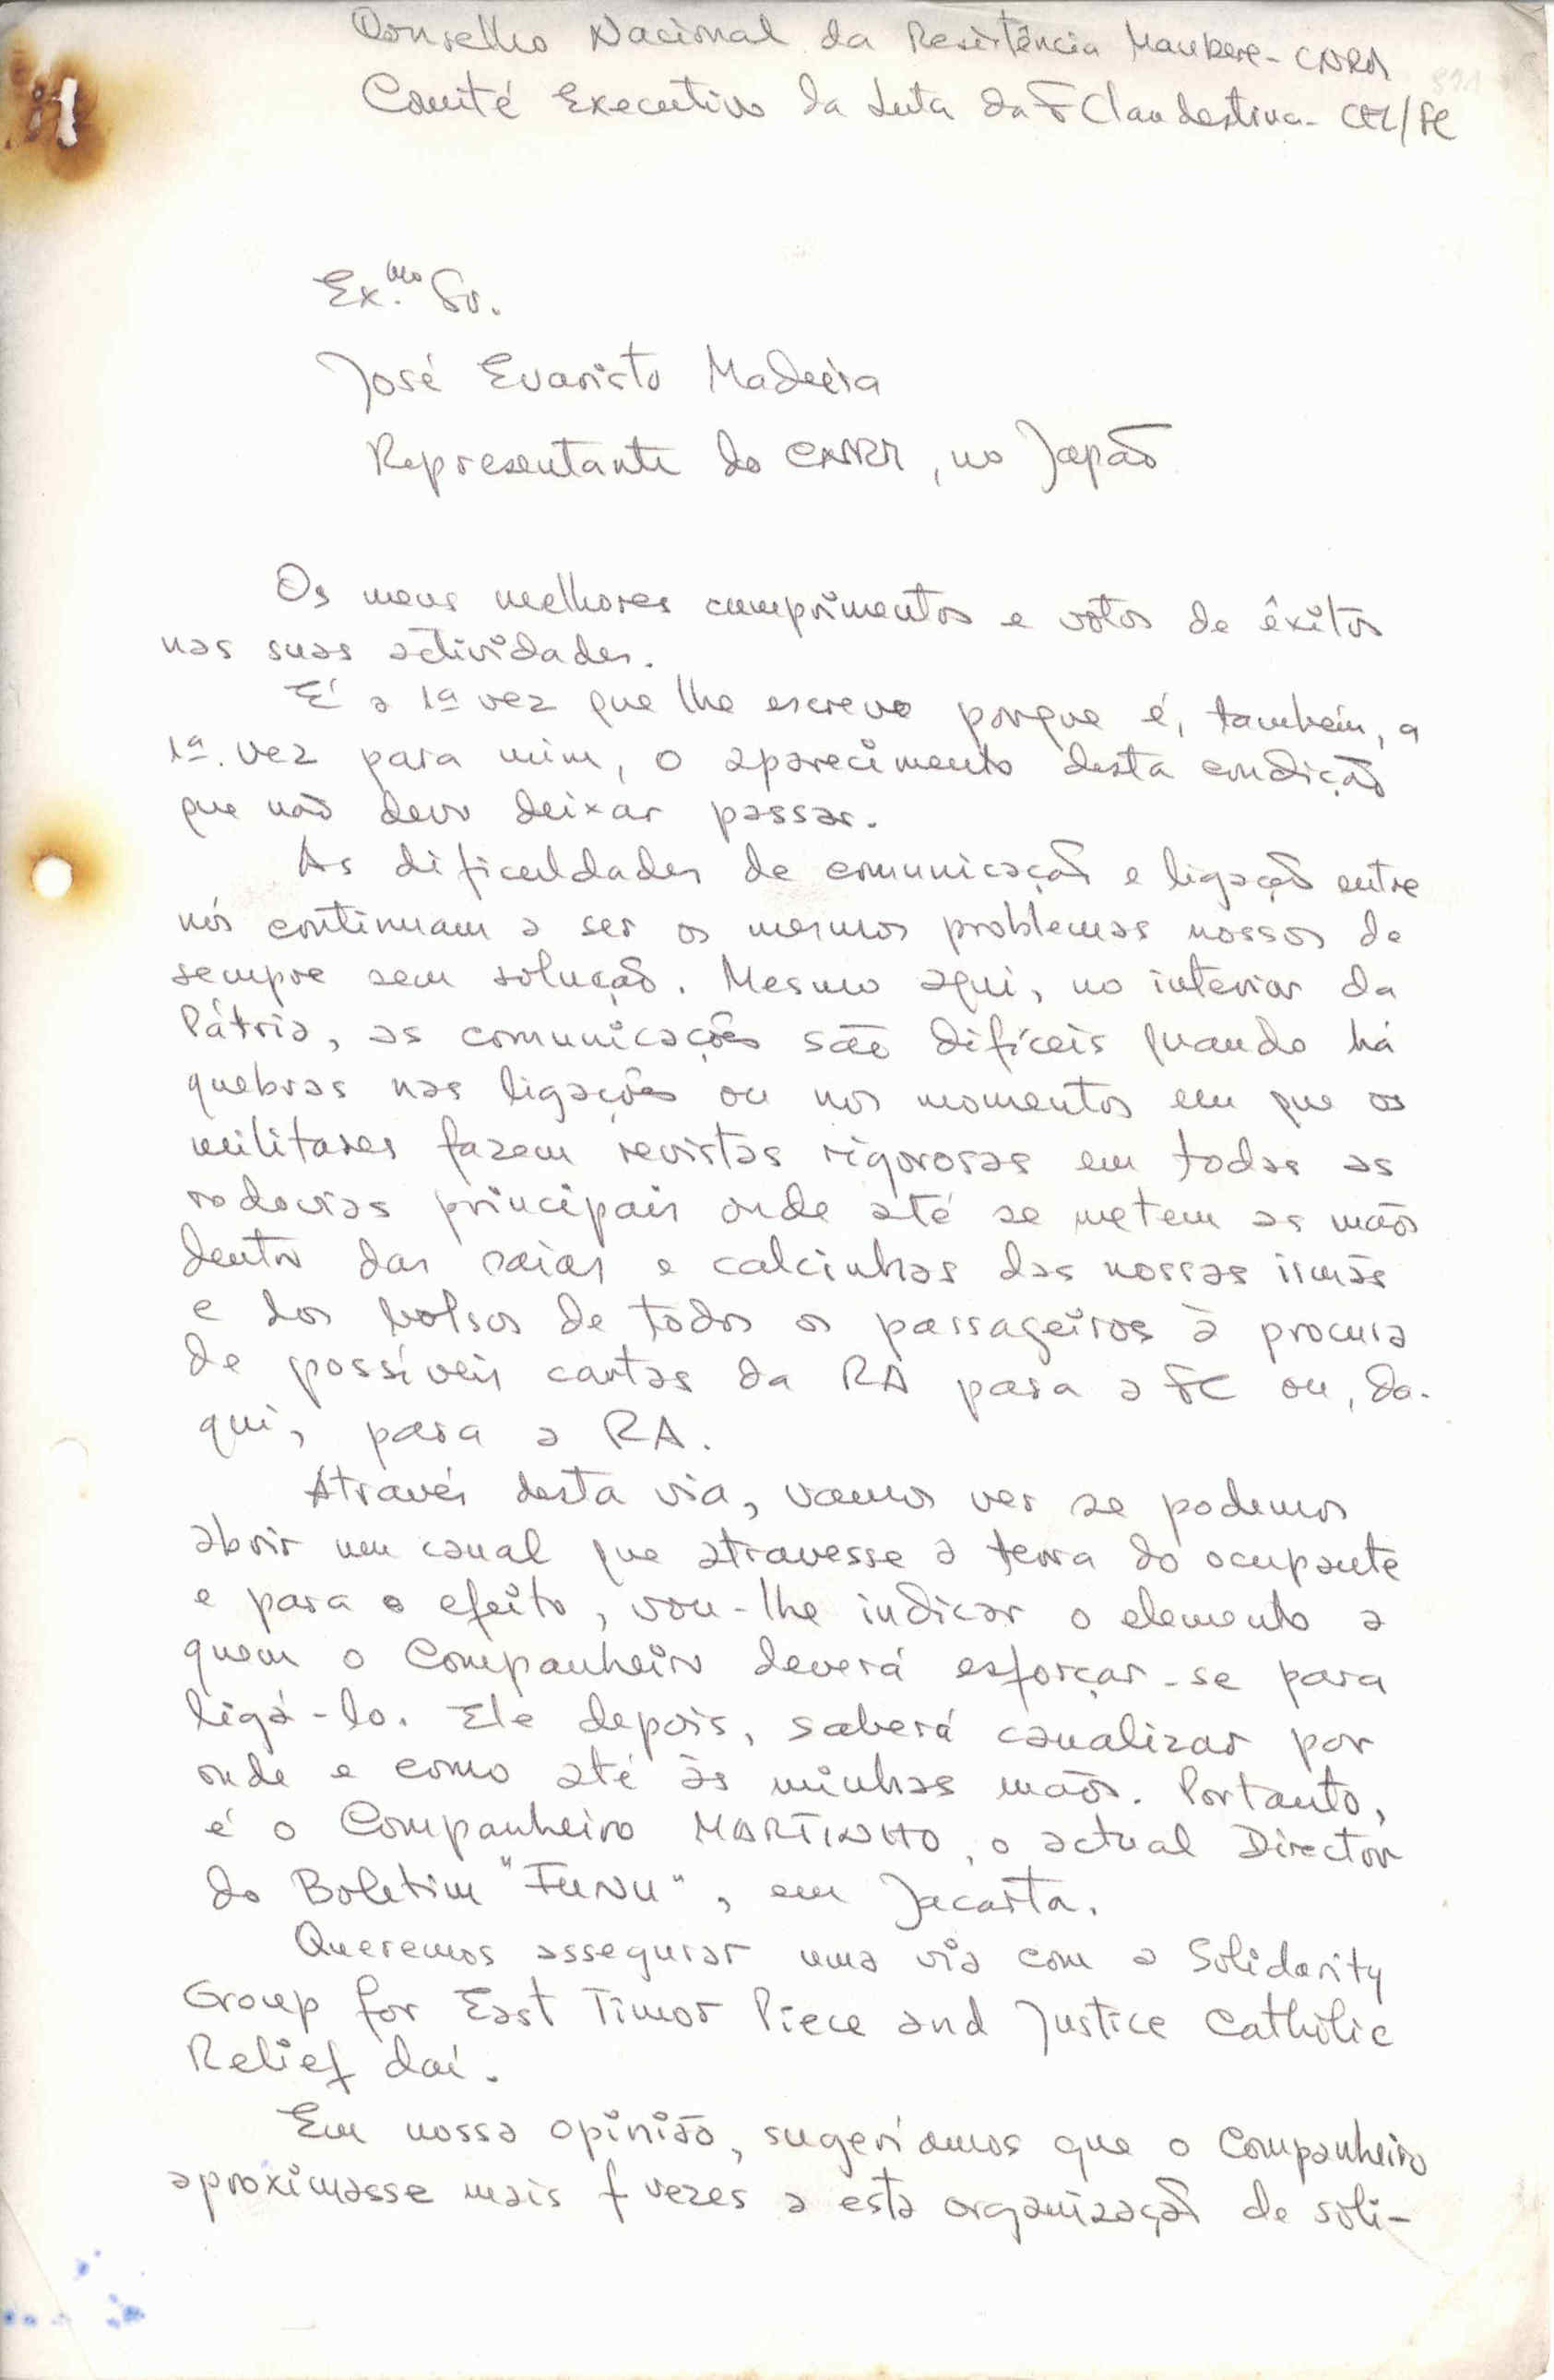 Conselho Nacional da Resistência Maubere - CNRM
Comité Executivo da Luta da F Clandestina - CEL/FC
Ex.mo Sr.
José Evaristo Madeira
Representante do CNRM, no Japão
Os meus melhores cumprimentos e votos de êxitos
nas suas actividades.
É a 1ª vez que lhe escrevo porque é, também, a
1ª. vez para mim, o aparecimento desta condição
que não devo deixar passar.
As dificuldades de comunicação e ligação entre
nós continuam a ser os mesmos problemas nossos de
sempre sem solução. Mesmo aqui, no interior da
Pátria, as comunicações são difíceis quando há
quebras nas ligações ou nos momentos em que os
militares fazem revistas rigorosas em todas as
rodovias principais onde até se metem as mãos
dentro das saias e calcinhas das nossas irmãs
e dos bolsos de todos os passageiros à procura
de possíveis cartas da RA para a FC ou, da-
qui, para a RA.
Através desta via, vamos ver se podemos
abrir um canal que atravesse a terra do ocupante
e para o efeito, vou-lhe indicar o elemento a
quem o Companheiro deverá esforçar-se para
ligá-lo. Ele depois, saberá canalizar por
onde e como até às minhas mãos. Portanto,
é o Companheiro MARTINHO, o actual Director
do Boletim "FUNU", em Jacarta.
Queremos assegurar uma via com a Solidarity
Group for East Timor Piece and Justice Catholic
Relief daí.
Em nossa opinião, sugeríamos que o Companheiro
aproximasse mais f vezes a esta organização de soli-